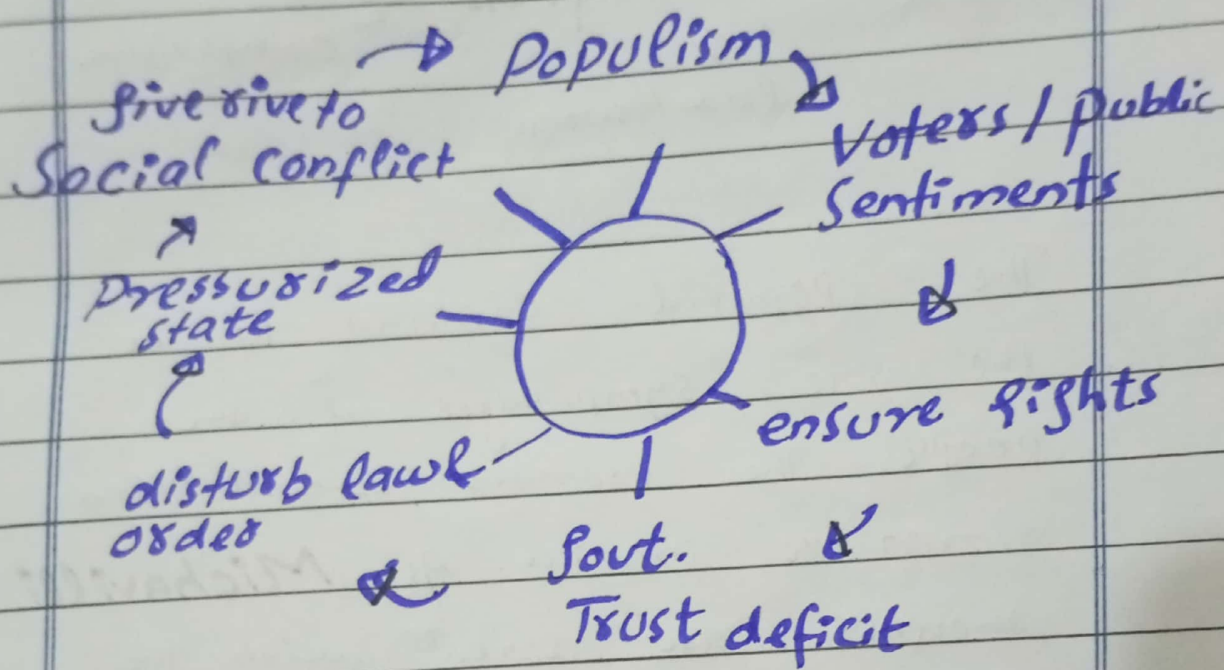 Populism
Voters / Public
Sentiments
ensure rights
Govt.
Trust deficit
disturb law &
order
Pressurized
state
give rive to
Social Conflict